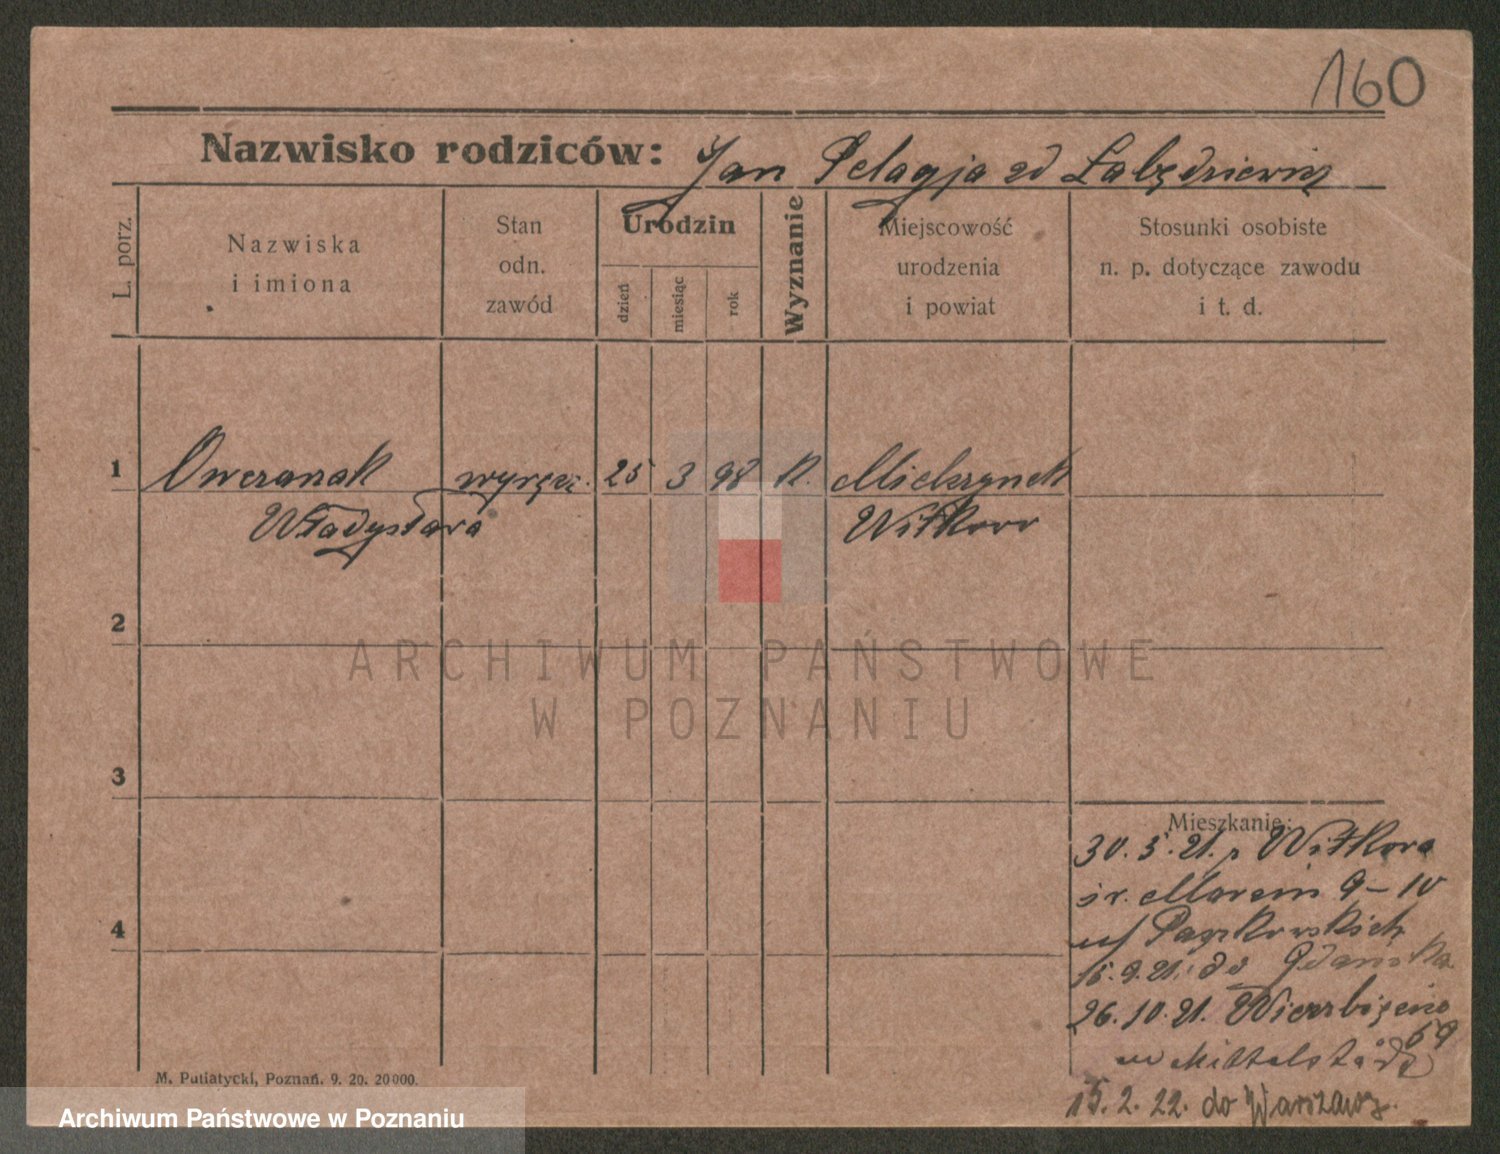 160
Nazwisko rodziców: Jan Pelagja zd Łabędziewicz
L. porz.
Nazwiska
i imiona
Stan
odn.
zawód
Urodzin
dzień
miesiąc
rok
Wyznanie
Miejscowość
urodzenia
i powiat
Stosunki osobiste
n. p. dotyczące zawodu
i t. d.
1 Owczarzak 25 3 98 K. Mielszynek
Władysława Witkowo
2
3
4
Mieszkanie:
30.5.21. z Witkowa
św. Marcin 9-10
u/
15.9.21. do Gdańska
26.10.21. Wierzbięcice
59
u Mittelstädt
15.2.22. do Warszawy.
M. Putiatycki, Poznań. 9. 20. 20000.
ARCHIWUM PAŃSTWOWE
W POZNANIU
Archiwum Państwowe w Poznaniu